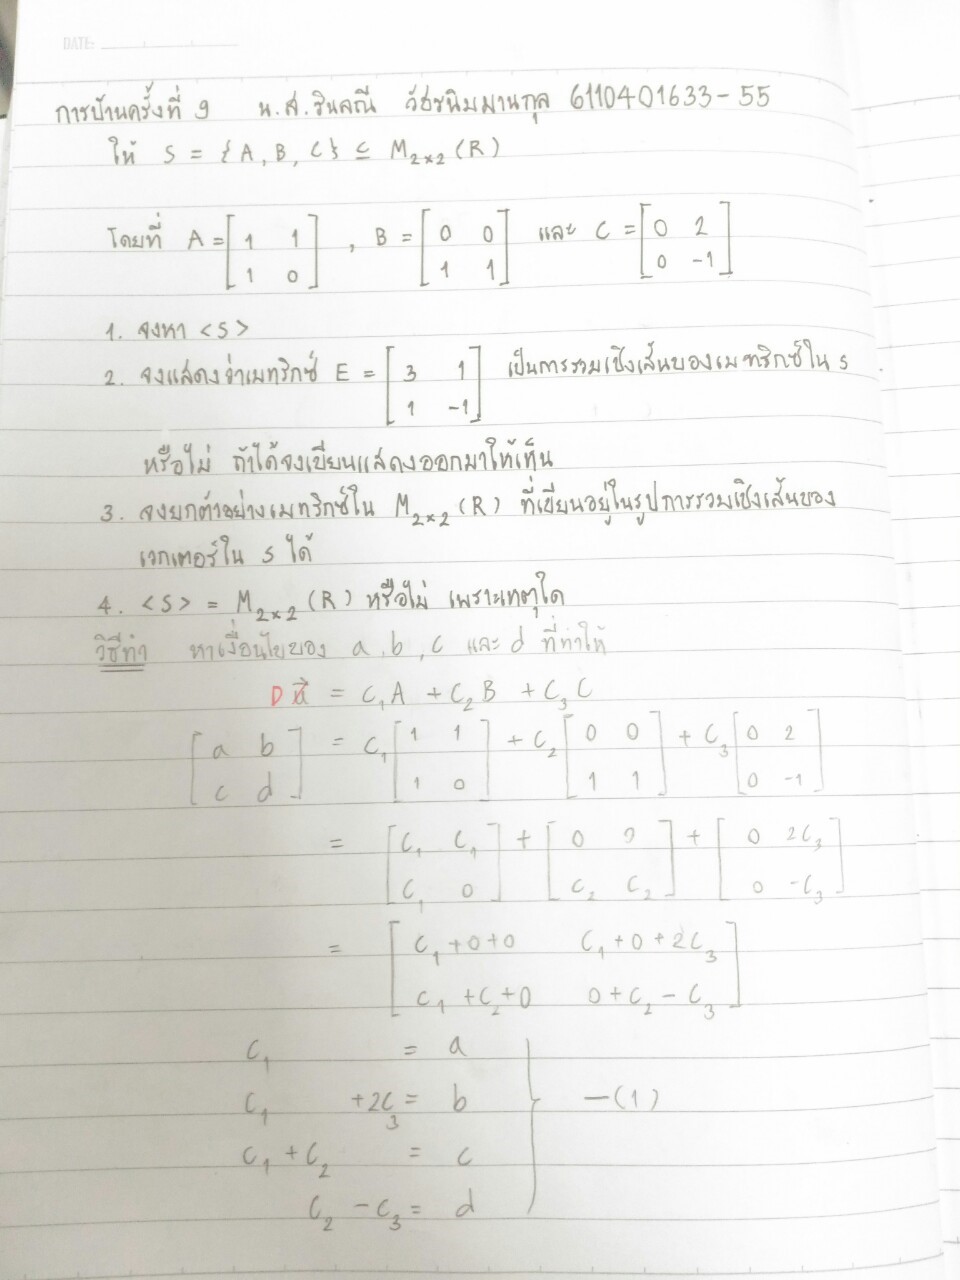 DATE:
การบ้านครั้งที่ 9 น.ส. วัธรนิมมานกุล 6110401633-55
ให้ S = {A, B, C} ⊆ M₂ₓ₂(R)
โดยที่ A = [1 1; 1 0], B = [0 0; 1 1] และ C = [0 2; 0 -1]
1. จงหา <S>
2. จงแสดงว่าเมทริกซ์ E = [3 1; 1 -1] เป็นการรวมเชิงเส้นของเมทริกซ์ใน S
หรือไม่ ถ้าได้จงเขียนแสดงออกมาให้เห็น
3. จงยกตัวอย่างเมทริกซ์ใน M₂ₓ₂(R) ที่เขียนอยู่ในรูปการรวมเชิงเส้นของ
เวกเตอร์ใน S ได้
4. <S> = M₂ₓ₂(R) หรือไม่ เพราะเหตุใด
วิธีทำ หาเงื่อนไขของ a, b, c และ d ที่ทำให้
D = C₁A + C₂B + C₃C
[a b; c d] = C₁[1 1; 1 0] + C₂[0 0; 1 1] + C₃[0 2; 0 -1]
= [C₁ C₁; C₁ 0] + [0 0; C₂ C₂] + [0 2C₃; 0 -C₃]
= [C₁+0+0 C₁+0+2C₃; C₁+C₂+0 0+C₂-C₃]
C₁ = a
C₁ +2C₃ = b —(1)
C₁ + C₂ = c
C₂ - C₃ = d